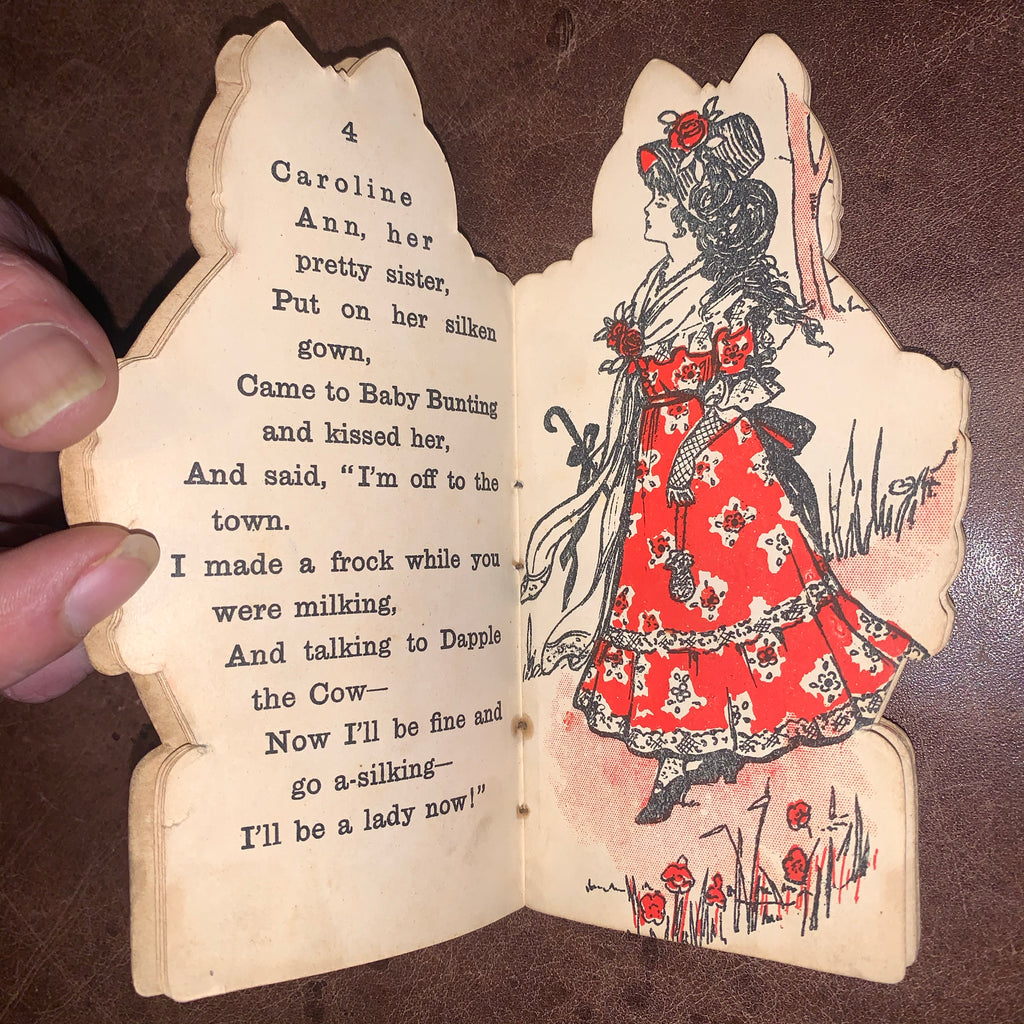 4
Caroline
Ann, her
pretty sister,
Put on her silken
gown,
Came to Baby Bunting
and kissed her,
And said, “I’m off to the
town.
I made a frock while you
were milking,
And talking to Dapple
the Cow—
Now I’ll be fine and
go a-silking—
I’ll be a lady now!”